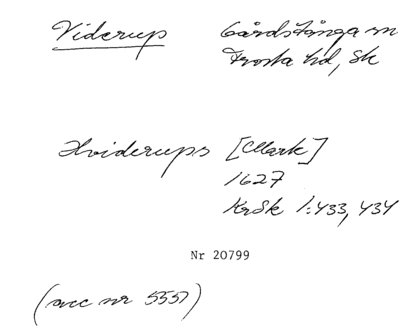 Viderup Gårdstånga sn
Frosta hd, Sk
Hviderups [Mark]
1627
KrSk 1:433, 434
Nr 20799
(acc nr 5551)